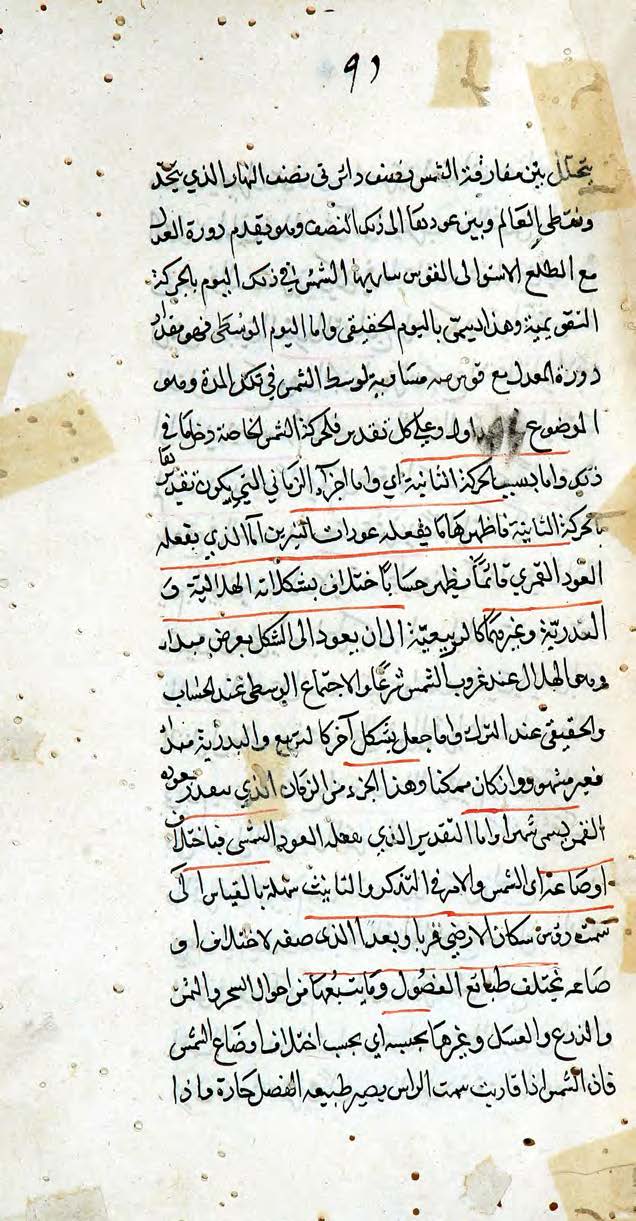 ٩١
يتخلل بين مفارقة الشمس نصف دائرتي نصف النهار الذي يتحد
ونقطتي العالم وبين عودتها الى ذلك النصف وهو يقدم دورة المعدل
مع المطلع الاستوائي القوس سارتها الشمس في ذلك اليوم بالحركة
التقويمية وهذا يسمى باليوم الحقيقي واما اليوم الوسطى فهو مقدار
دورة المعدل مع قوس منه مساوية لوسط الشمس في تلك المدة وهو
الموضوع اولا وعلى كل تقدير فلحركة الشمس الخاصة دخل ما في
ذلك واما بسبب الحركة الثانية اي واما اجزاء الزماني التي يكون تقديرها
بالحركة الثانية فاظهرها ما يفعله عودات النيرين اما الذي يفعله
العود القمري قائما يظهر حسا باختلاف بشكلاته الهلالية و
البدرية وغيرهما كالربيعية الى ان يعود الى الشكل يعرض مبداء
وهو الهلال عند غروب الشمس شرعا والاجتماع الوسطى عند الحساب
والحقيقي عند الترك واما جعل بشكل آخر كالتربيع والبدرية مبداء
فغير مشهور وان كان ممكنا وهذا الجزء من الزمان الذي يقدر بعوده
القمر يسمى شهرا واما التقدير الذي يفعله العود الشمسي فباختلاف
اوضاعه اي الشمس والامر في التذكير والتانيث سهلة بالقياس الى
سمت رؤس سكان الارض قربا وبعدا الذي صفه لاختلاف او
ضاعه يختلف طبائع الفصول وما يتبعها من احوال الشجر والثمر
والزرع والعسل وغيرها بحسبه اي بحسب اختلاف اوضاع الشمس
فان الشمس اذا قاربت سمت الراس يصير طبيعه الفصل حارة واذا